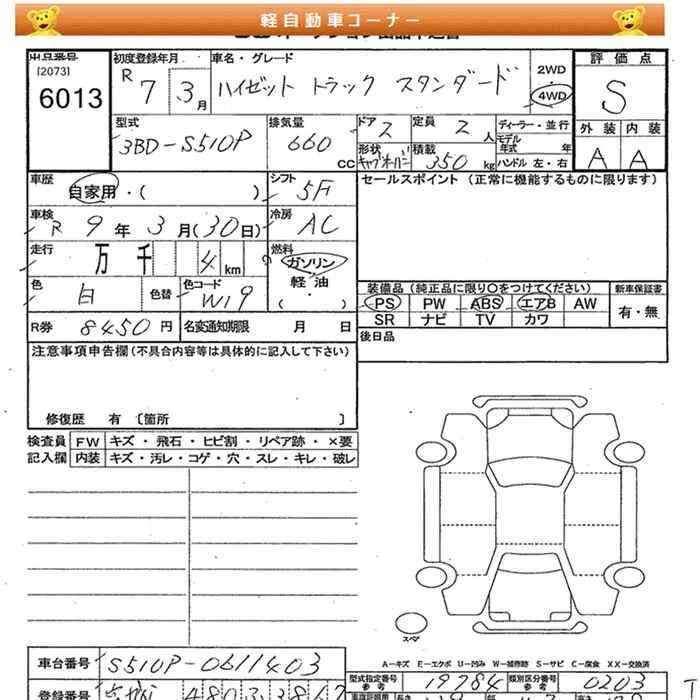 軽自動車コーナー
出品番号
[2073]
6013
初度登録年月
R 7 3月
車名・グレード
ハイゼット トラック スタンダード
2WD
4WD
評価点
S
型式
3BD-S510P
排気量
660 CC
ドア
2
定員
2人
ディーラー・並行
モデル年式 年
形状
キャブオーバン
積載
350 kg
ハンドル 左・右
外装 内装
A A
車歴
自家用・( )
シフト
5F
セールスポイント (正常に機能するものに限ります)
車検
R 9年 3月(30日)
冷房
AC
走行
万 千 4 km
燃料
ガソリン
軽油
・
( )
色
白
色替
色コード
W19
装備品 (純正品に限り○をつけてください)
新車保証書
PS PW ABS エアB AW
SR ナビ TV カワ
有・無
R券 8450円
名変通知期限 月 日
後日品
注意事項申告欄 (不具合内容等は具体的に記入して下さい)
修復歴 有 〔箇所 〕
検査員
記入欄
FW キズ・飛石・ヒビ割・リペア跡・×要
内装 キズ・汚レ・コゲ・穴・スレ・キレ・破レ
スペア
A-キズ E-エクボ U-凹み W-補修跡 S-サビ C-腐食 XX-交換済
車台番号
S510P-0611403
型式指定番号
参考
19784
類別区分番号
参考
0203
登録番号